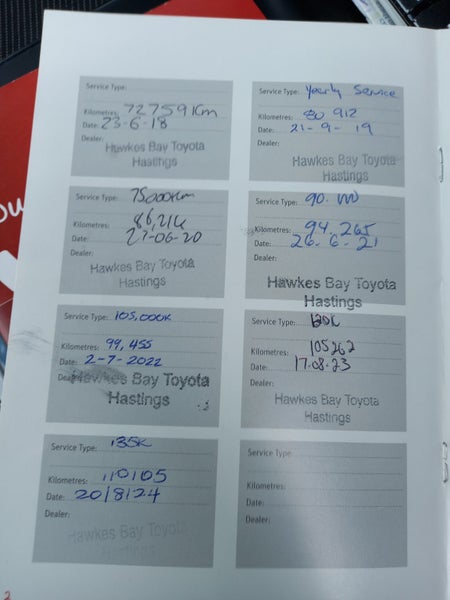 Service Type:
Kilometres: 72759 Km
Date: 23-6-18
Dealer:
Hawkes Bay Toyota
Hastings
Service Type: Yearly Service
Kilometres: 80 912
Date: 21-9-19
Dealer:
Hawkes Bay Toyota
Hastings
Service Type: 75000Km
Kilometres: 86,214
Date: 27-06-20
Dealer:
Hawkes Bay Toyota
Hastings
Service Type: 90.000
Kilometres: 94,265
Date: 26-6-21
Dealer:
Hawkes Bay Toyota
Hastings
Service Type: 105,000K
Kilometres: 99,455
Date: 2-7-2022
Dealer:
Hawkes Bay Toyota
Hastings
Service Type: 120K
Kilometres: 105262
Date: 17.08.23
Dealer:
Hawkes Bay Toyota
Hastings
Service Type: 135K
Kilometres: 110105
Date: 20/8/24
Dealer:
Hawkes Bay Toyota
Hastings
Service Type:
Kilometres:
Date:
Dealer: